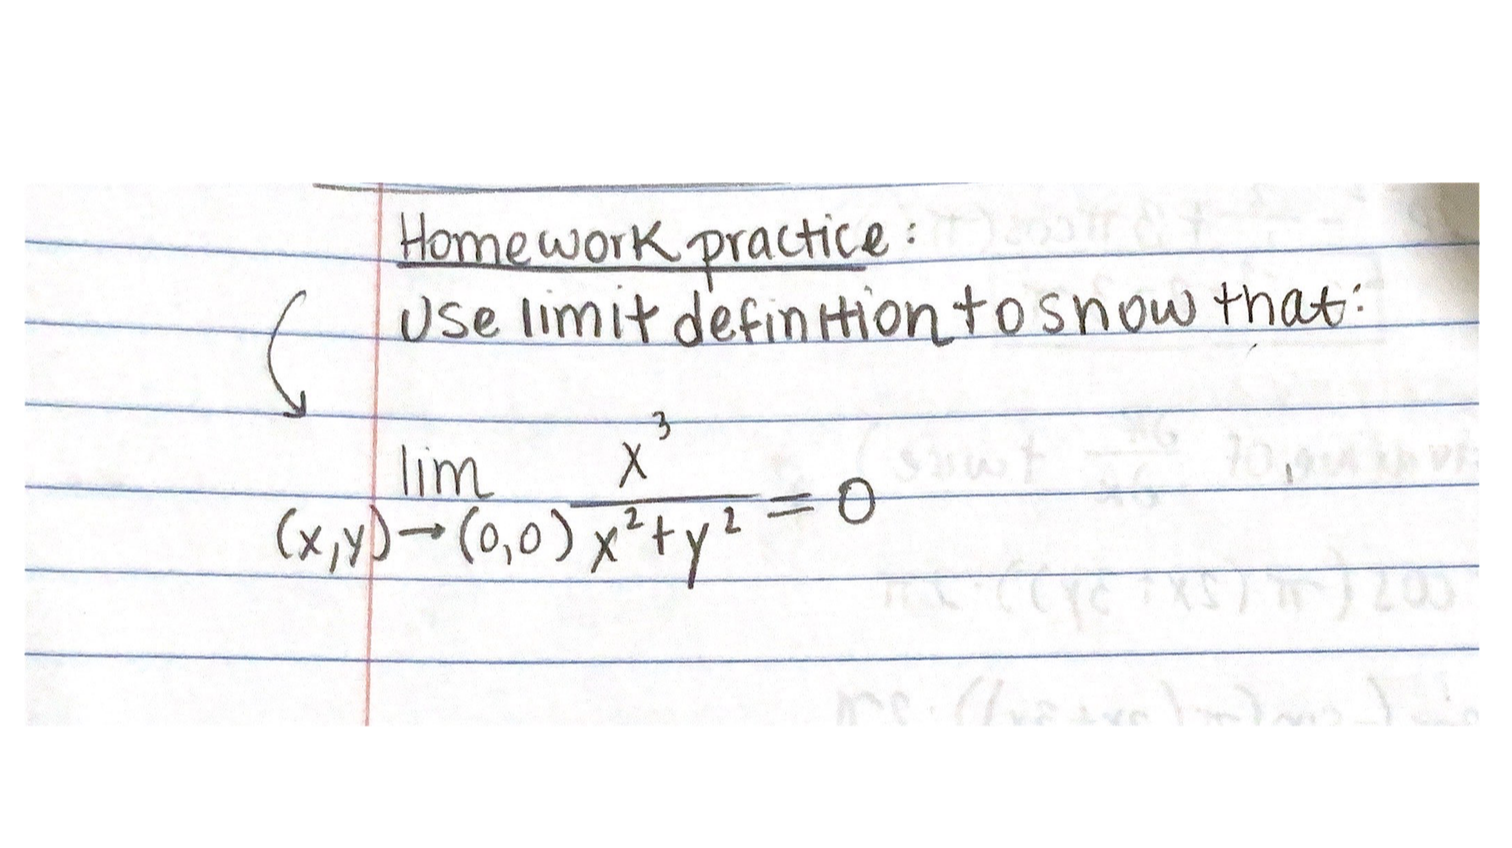 Homework practice:
Use limit definition to show that:
lim x³
(x,y)→(0,0) x²+y² = 0